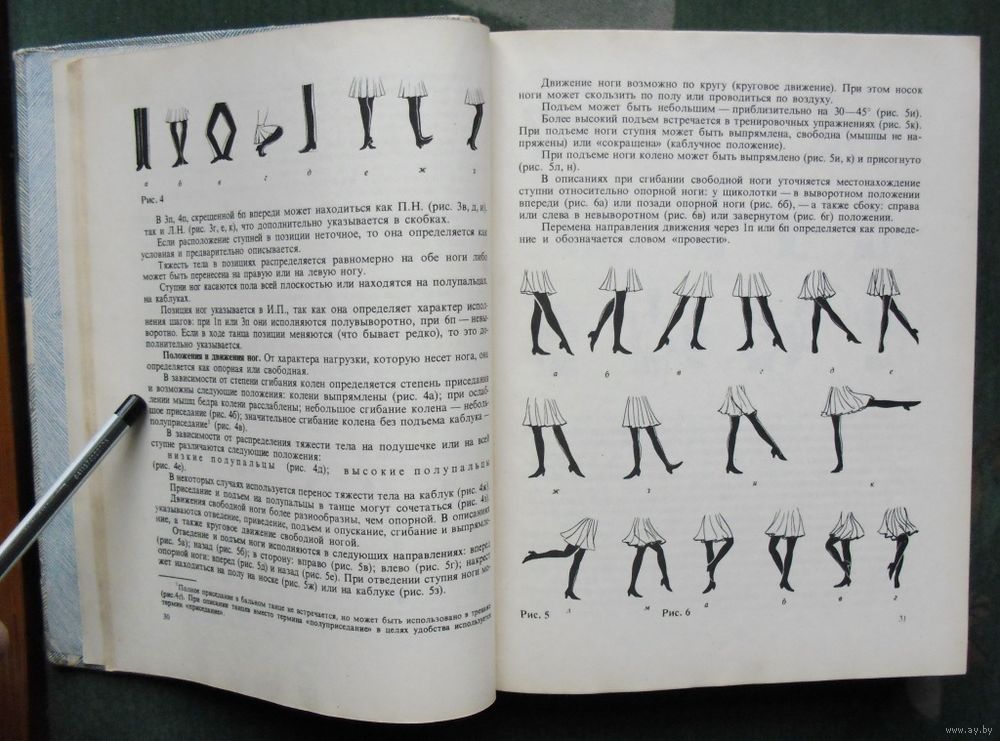 а б в г д е ж з
Рис. 4
В 3п, 4п, скрещенной 6п впереди может находиться как П.Н. (рис. 3в, д, и),
так и Л.Н. (рис. 3г, е, к), что дополнительно указывается в скобках.
Если расположение ступней в позиции неточное, то она определяется как
условная и предварительно описывается.
Тяжесть тела в позициях распределяется равномерно на обе ноги либо
может быть перенесена на правую или на левую ногу.
Ступни ног касаются пола всей плоскостью или находятся на полупальцах,
на каблуках.
Позиция ног указывается в И.П., так как она определяет характер испол-
нения шагов: при 1п или 3п они исполняются полувыворотно, при 6п — невы-
воротно. Если в ходе танца позиции меняются (что бывает редко), то это до-
полнительно указывается.
Положения и движения ног. От характера нагрузки, которую несет нога, она
определяется как опорная или свободная.
В зависимости от степени сгибания колен определяется степень приседания
и возможны следующие положения: колени выпрямлены (рис. 4а); при ослаб-
лении мышц бедра колени расслаблены; небольшое сгибание колена — неболь-
шое приседание (рис. 4б); значительное сгибание колена без подъема каблука —
полуприседание¹ (рис. 4в).
В зависимости от распределения тяжести тела на подушечке или на всей
ступне различаются следующие положения:
низкие полупальцы (рис. 4д); высокие полупальцы
(рис. 4е).
В некоторых случаях используется перенос тяжести тела на каблук (рис. 4ж).
Приседание и подъем на полупальцы в танце могут сочетаться (рис. 4з).
Движения свободной ноги более разнообразны, чем опорной. В описаниях
указываются отведение, приведение, подъем и опускание, сгибание и выпрямле-
ние, а также круговое движение свободной ногой.
Отведение и подъем ноги исполняются в следующих направлениях: вперед
(рис. 5а); назад (рис. 5б); в сторону: вправо (рис. 5в); влево (рис. 5г); накрест
опорной ноги: вперед (рис. 5д) и назад (рис. 5е). При отведении ступня ноги мо-
жет находиться на полу на носке (рис. 5ж) или на каблуке (рис. 5з).
¹Полное приседание в бальном танце не встречается, но может быть использовано в тренаже
(рис.4г). При описании танцев вместо термина «полуприседание» в целях удобства используется
термин «приседание».
30
Движение ноги возможно по кругу (круговое движение). При этом носок
ноги может скользить по полу или проводиться по воздуху.
Подъем может быть небольшим — приблизительно на 30—45° (рис. 5и).
Более высокий подъем встречается в тренировочных упражнениях (рис. 5к).
При подъеме ноги ступня может быть выпрямлена, свободна (мышцы не на-
пряжены) или «сокращена» (каблучное положение).
При подъеме ноги колено может быть выпрямлено (рис. 5и, к) и присогнуто
(рис. 5л, н).
В описаниях при сгибании свободной ноги уточняется местонахождение
ступни относительно опорной ноги: у щиколотки — в выворотном положении
впереди (рис. 6а) или позади опорной ноги (рис. 6б), — а также сбоку: справа
или слева в невыворотном (рис. 6в) или завернутом (рис. 6г) положении.
Перемена направления движения через 1п или 6п определяется как проведе-
ние и обозначается словом «провести».
а б в г д е
ж з и к
л м а б в г
Рис. 5 Рис. 6
31
www.ay.by